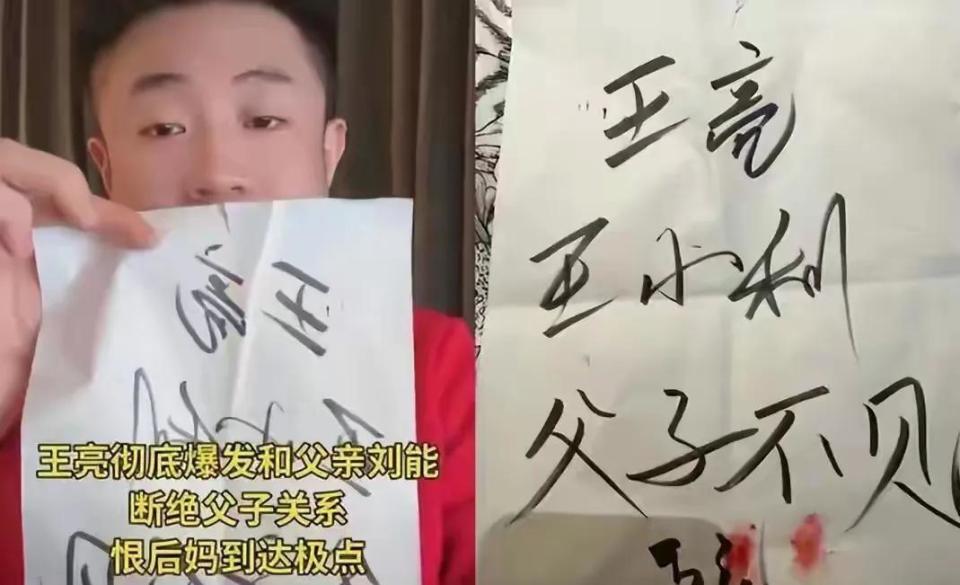 王亮彻底爆发和父亲刘能
断绝父子关系
恨后妈到达极点
王亮
王小利
父子不见